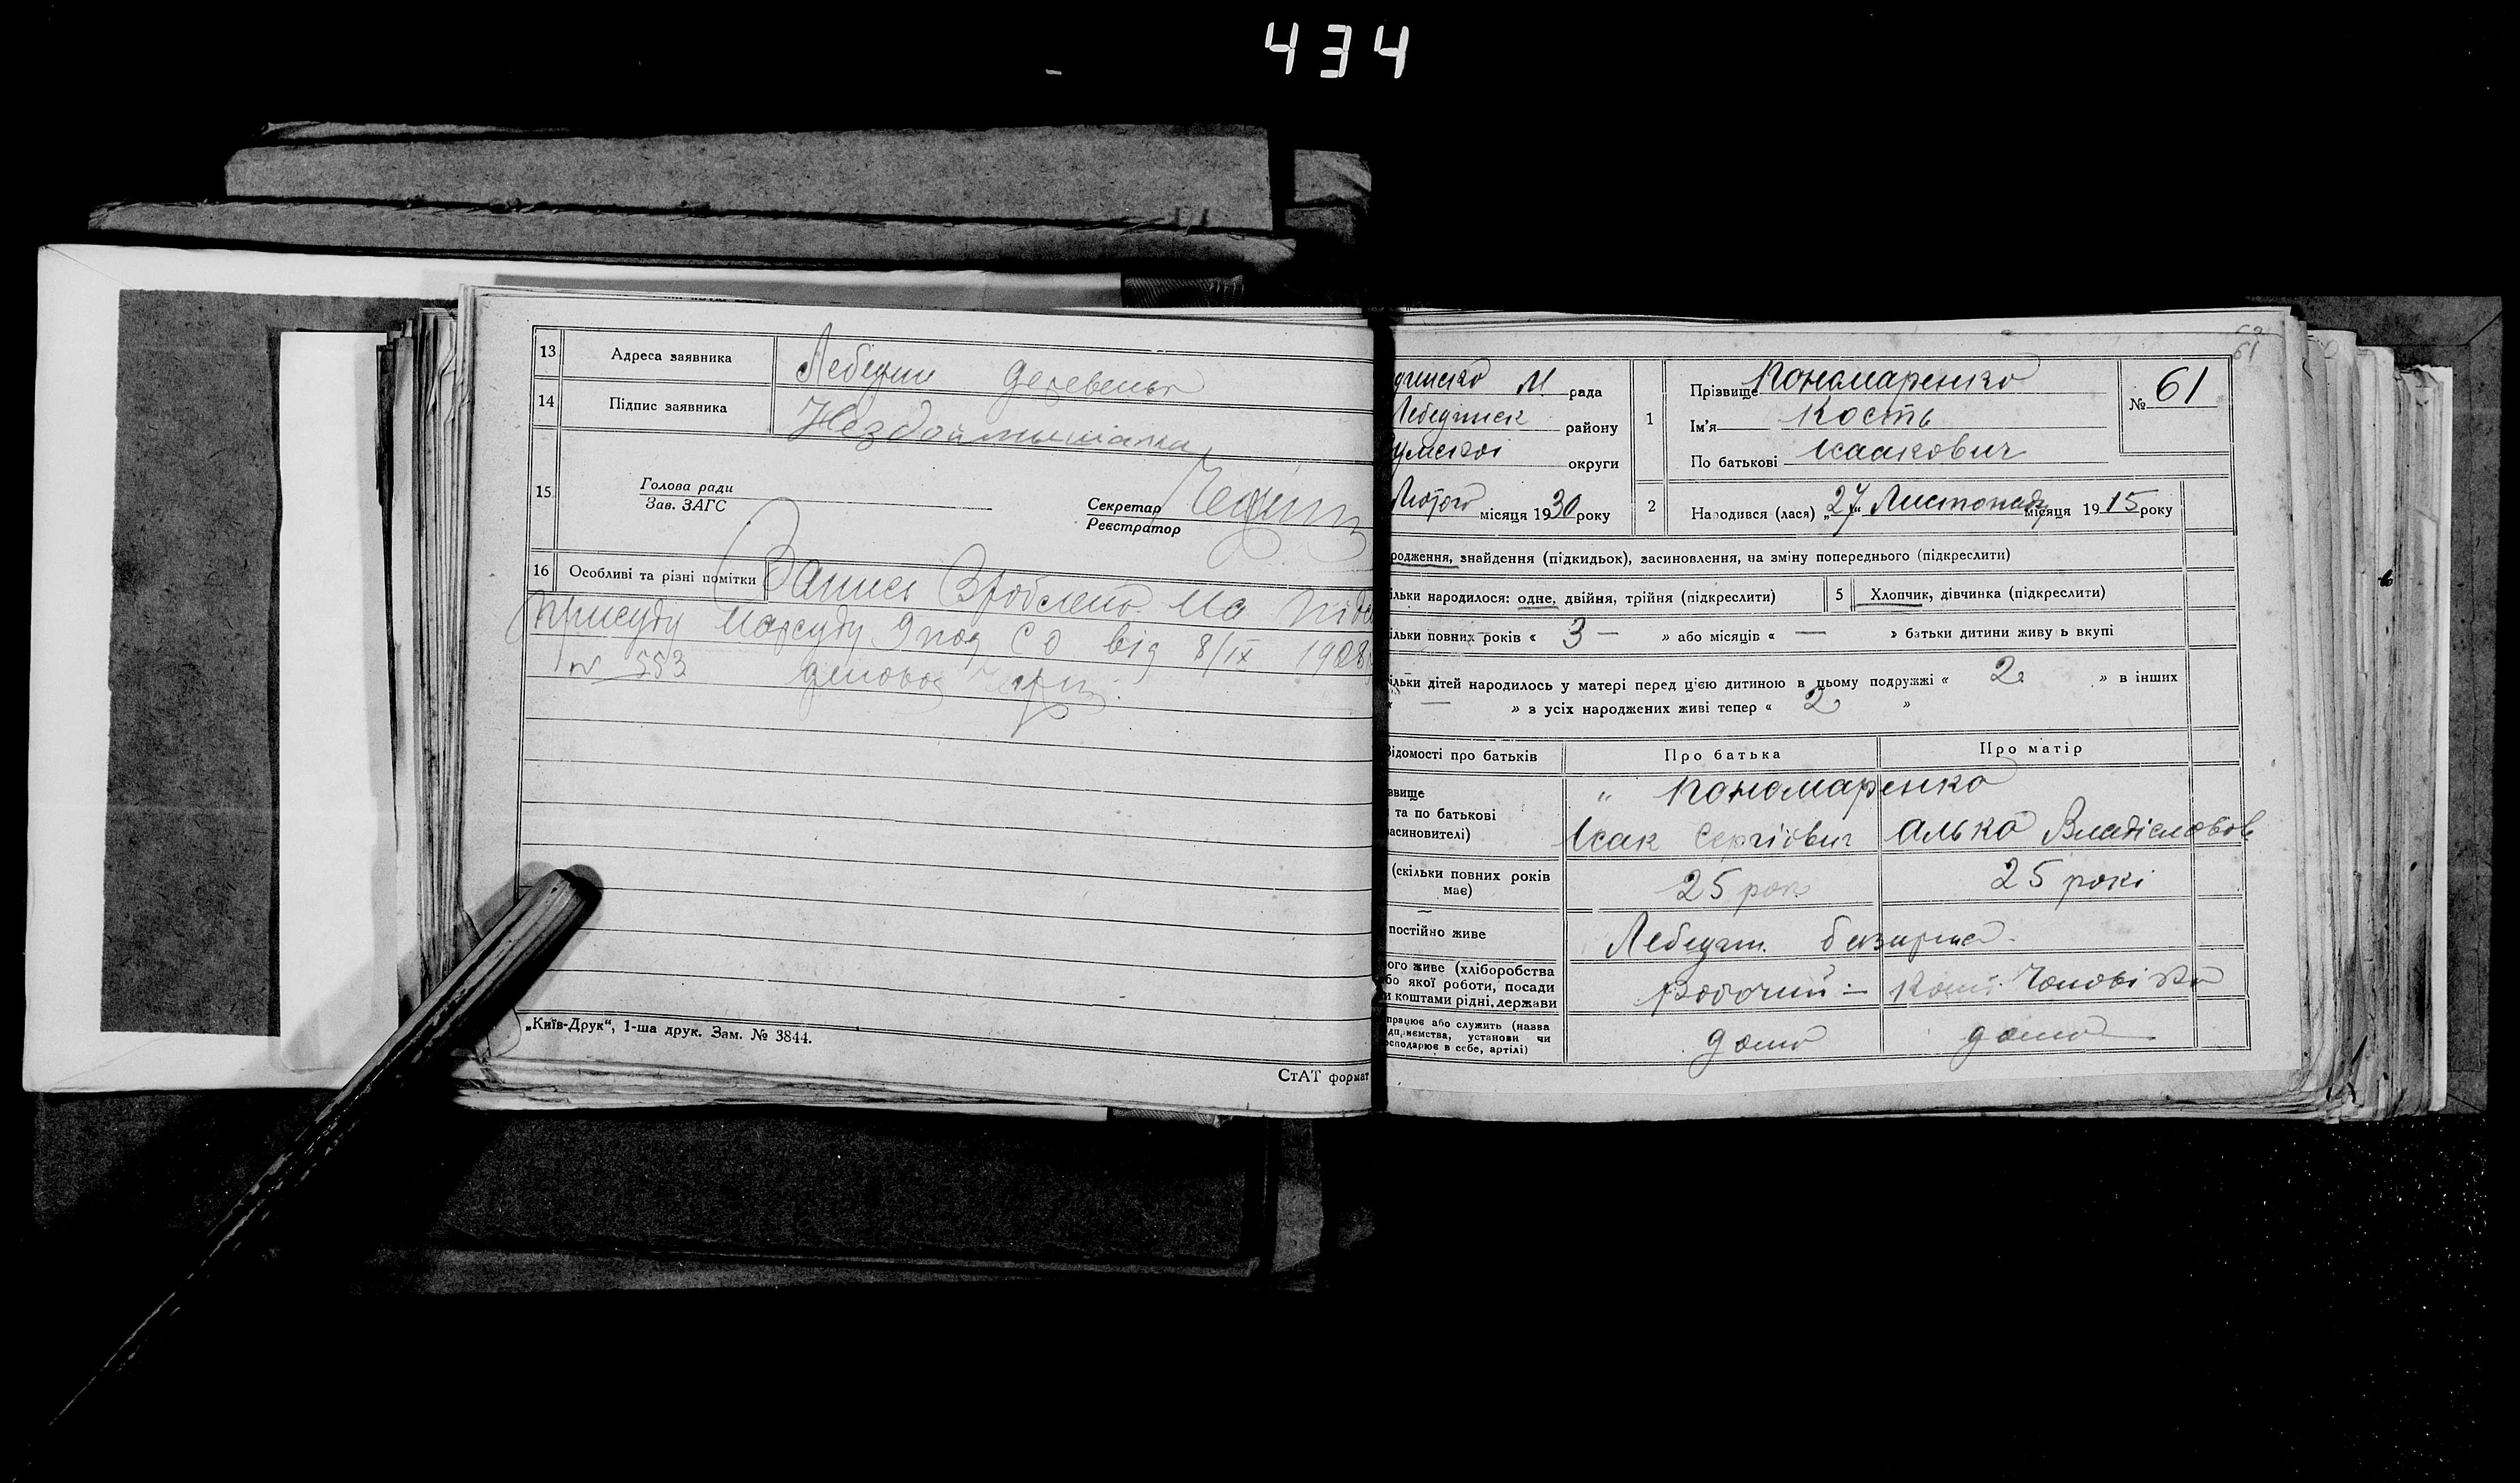 434
13 Адреса заявника Лебедин
14 Підпис заявника
15 Голова ради
Зав. ЗАГС
Секретар
Реєстратор
16 Особливі та різні помітки Запись Зроблено на
присуду Нарсуду 9 від 8/IX 1928
№ 553
„Київ-Друк“, 1-ша друк. Зам. № 3844.
СтАТ формат
61
динсько М. рада
Лебединск району
умскої округи
Лютого місяця 1930 року
1 Прізвище Пономаренко
Ім'я Кость
По батькові Ісаакович
№ 61
2 Народився (лася) „27“ Листопада місяця 1915 року
родження, знайдення (підкидьок), засиновлення, на зміну попереднього (підкреслити)
ільки народилося: одне, двійня, трійня (підкреслити) 5 Хлопчик, дівчинка (підкреслити)
ільки повних років « 3 — » або місяців « — » батьки дитини живу ь вкупі
ільки дітей народилось у матері перед цією дитиною в цьому подружжі « 2 » в інших
« — » з усіх народжених живі тепер « 2 »
Відомості про батьків Про батька Про матір
звище
та по батькові
асиновителі)
„ Пономаренко
Ісак Сергійович
(скільки повних років
має)
25 рок 25 рокі
постійно живе Лебедин.
ого живе (хліборобства
бо якої роботи, посади
и коштами рідні, держави
Робочий — Кошт. Чоловіка
працює або служить (назва
дприємства, установи чи
осподарює в себе, артілі)
дома дома